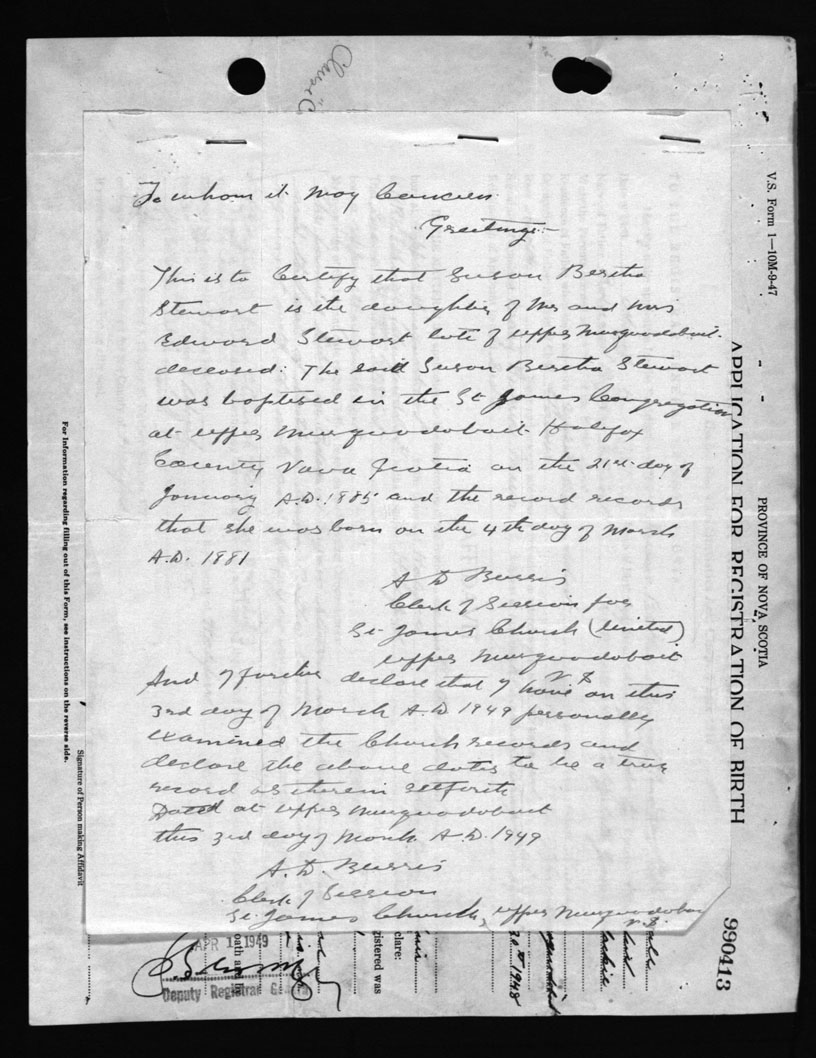 To whom it May Concern
Greetings:-
This is to Certify that Susan Bertha
Stewart is the daughter of Mr and Mrs
Edward Stewart late of upper Musquodoboit.
deceased: The said Susan Bertha Stewart
was baptised in the St James Congregation
at upper Musquodoboit Halifax
County Nova Scotia on the 21st day of
January A.D. 1885 and the record records
that she was born on the 4th day of March
A.D. 1881
A D Burris
Clerk of Session for
St James Church (United)
upper Musquodoboit
N S
And I further declare that I have on this
3rd day of March A.D 1949 personally
examined the Church records and
declare the above dates to be a true
record as therein setforth
Dated at upper Musquodoboit
this 3rd day of March A.D. 1949
A.D. Burris
Clerk of Session
St. James Church, upper Musquodoboit
N.S.
V.S. Form 1—10M-9-47
PROVINCE OF NOVA SCOTIA
APPLICATION FOR REGISTRATION OF BIRTH
990413
For Information regarding filling out of this Form, see instructions on the reverse side.
Signature of Person making Affidavit
APR 1 1949
Deputy Registrar
oath
gistered was
clare:
1948